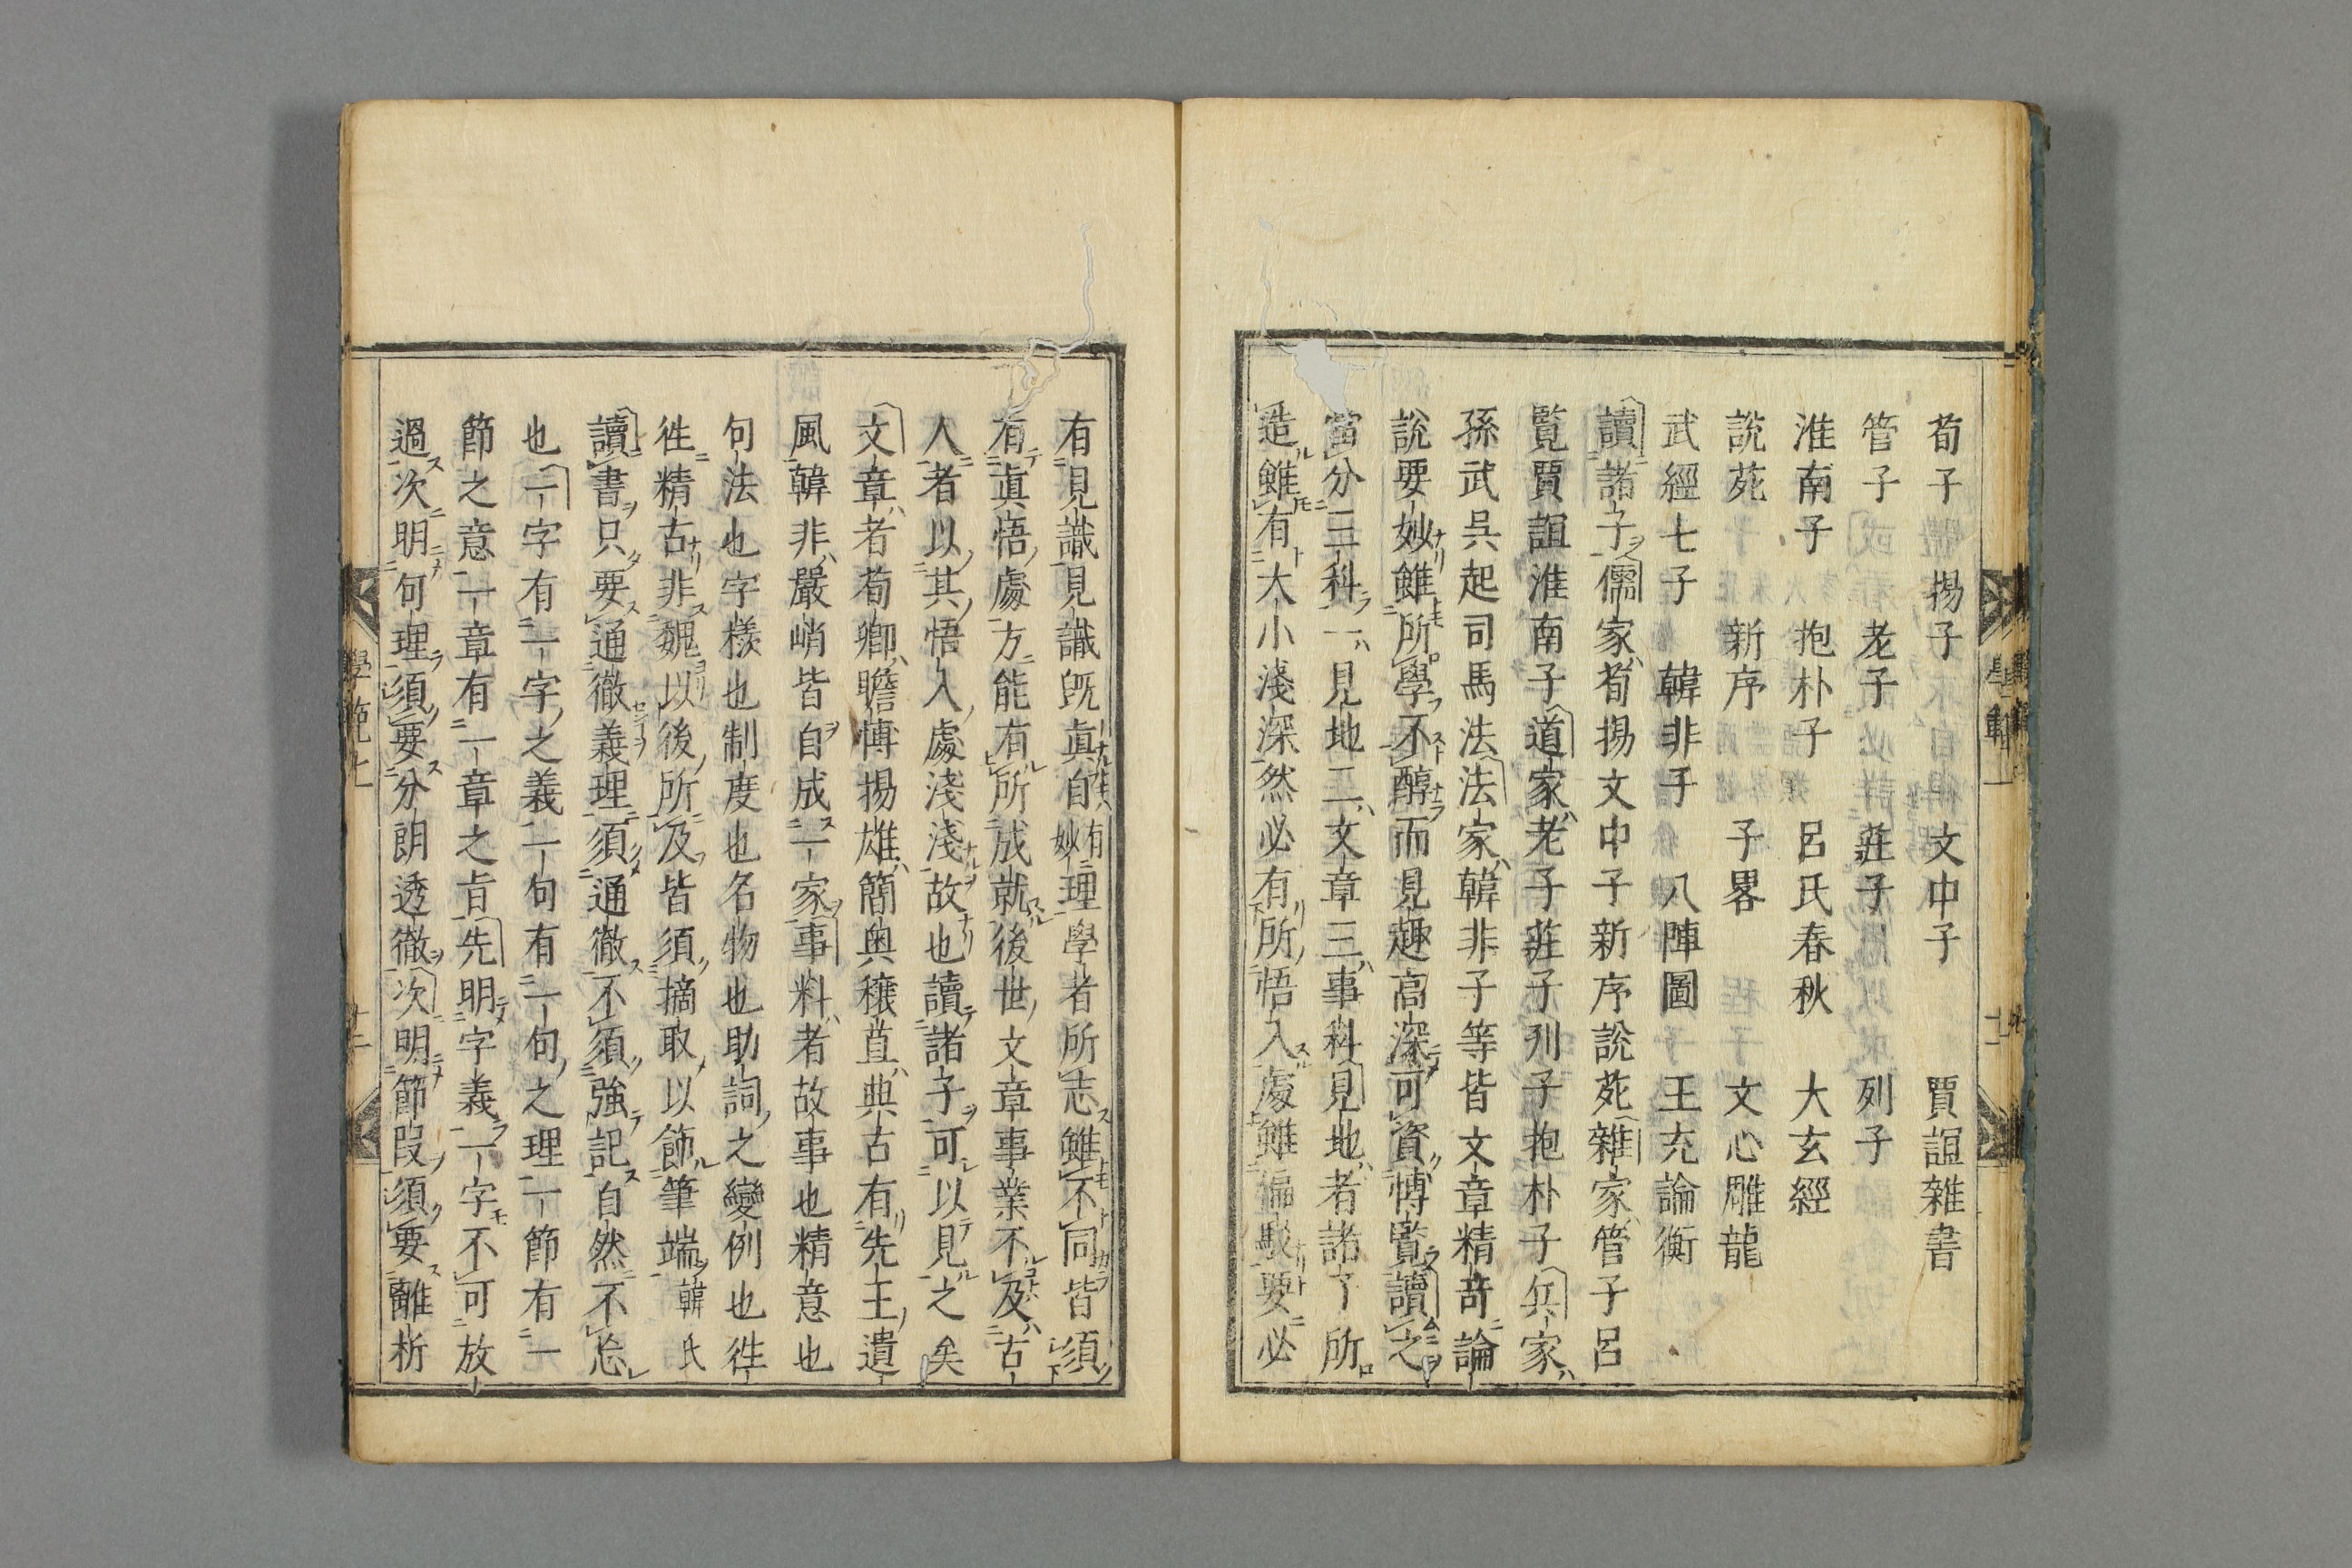 荀子　揚子　文中子　賈誼雜書
管子　老子　莊子　列子
淮南子　抱朴子　呂氏春秋　大玄經
說苑　新序　子畧　文心雕龍
武經七子　韓非子　八陣圖　王充論衡
讀諸子儒家荀揚文中子新序說苑雜家管子呂
覧賈誼淮南子道家老子莊子列子抱朴子兵家
孫武呉起司馬法法家韓非子等皆文章精奇論
說要妙雖所學不醇而見趣高深可資博覧讀之
當分三科一見地二文章三事料見地者諸子所
造雖有大小淺深然必有所悟入處雖偏駁要必
有見識見識既真自有妙理學者所志雖不同皆須
有真悟處方能有所成就後世文章事業不及古
人者以其悟入處淺淺故也讀諸子可以見之矣
文章者荀卿贍博揚雄簡奥穰苴典古有先王遺
風韓非嚴峭皆自成一家事料者故事也精意也
句法也字樣也制度也名物也助詞之變例也徃
徃精古非魏以後所及皆須摘取以飾筆端韓氏
讀書只要通徹義理須通徹不須強記自然不忘
也一字有一字之義一句有一句之理一節有一
節之意一章有一章之旨先明字義一字不可放
過次明句理須要分朗透徹次明節段須要離析
學範上
十二